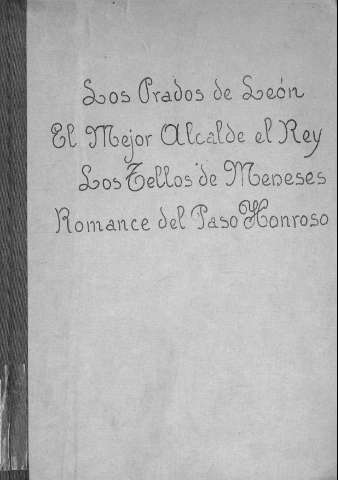 Los Prados de León
El Mejor Alcalde el Rey
Los Tellos de Meneses
Romance del Paso Honroso